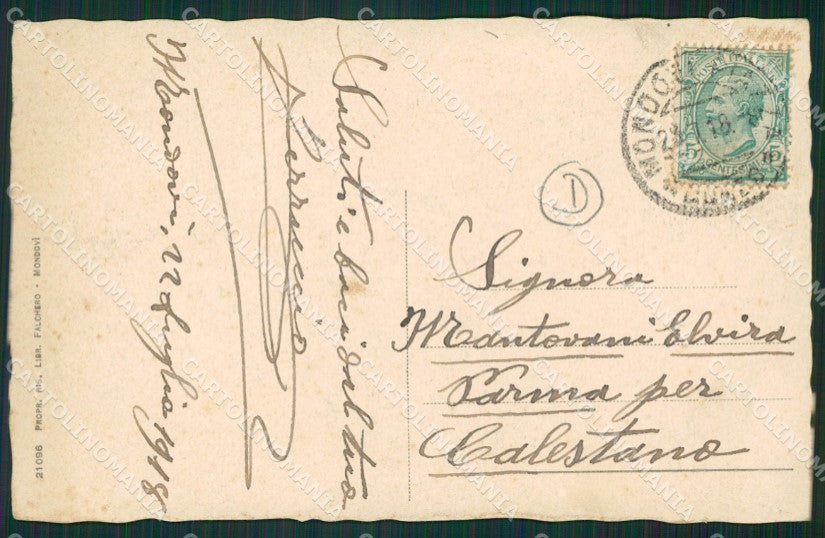 Mondovì, 22 Luglio 1918
Saluti e baci dal tuo
Ferruccio
Signora
Mantovani Elvira
Parma per
Calestano
D
POSTE ITALIANE
CENTESIMI
5 5
MONDOVÌ
18
CUNEO
21096 PROPR. RIS. LIBR. FALCHERO - MONDOVÌ
CARTOLINOMANIA